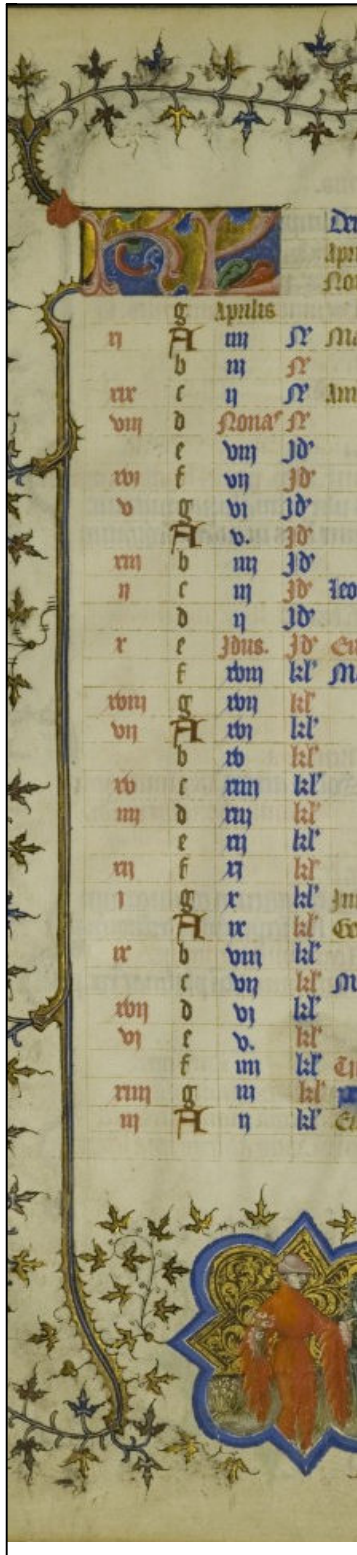 KL
Apri
g Aprilis
ij A iiij N Ma
b iij N
xix c ij N Am
viij d Nonas N
e viij Id
xvi f vij Id
v g vi Id
A v. Id
xiij b iiij Id
ij c iij Id leo
d ij Id
x e Idus. Id Eu
f xviij kl M
xviij g xvij kl
vij A xvi kl
b xv kl
xv c xiiij kl
iiij d xiij kl
e xij kl
xij f xi kl
i g x kl
A ix kl Ge
ix b viij kl
c vij kl M
xvij d vi kl
vi e v. kl
f iiij kl
xiiij g iij kl
iij A ij kl